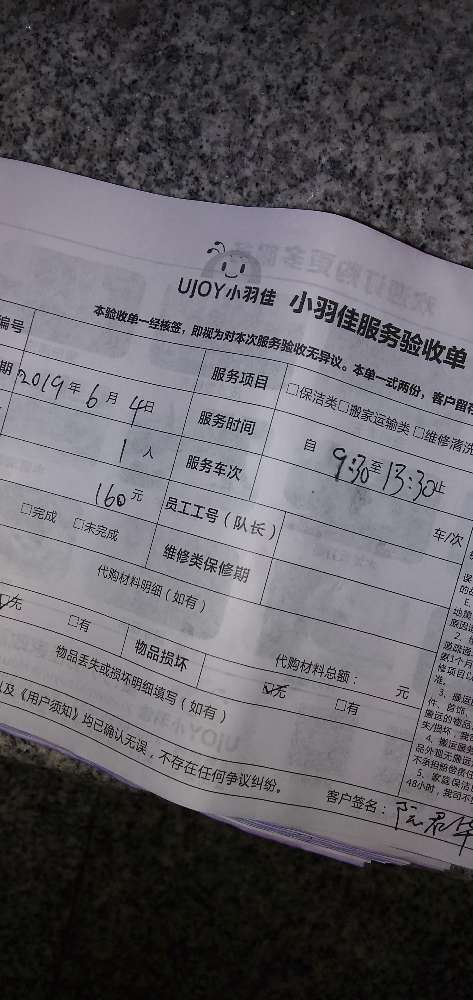 UJOY小羽佳 小羽佳服务验收单
本验收单一经核签，即视为对本次服务验收无异议。本单一式两份，客户留存
编号 服务项目 □保洁类□搬家运输类□维修清洗
期 2019年6月4日 服务时间 自 9:30至13:30止
1人 服务车次 车/次
160元 员工工号（队长）
□完成 □未完成 维修类保修期
代购材料明细（如有）
代购材料总额： 元
☑无 □有 物品损坏 ☑无 □有
物品丢失或损坏明细填写（如有）
以及《用户须知》均已确认无误，不存在任何争议纠纷。
客户签名：